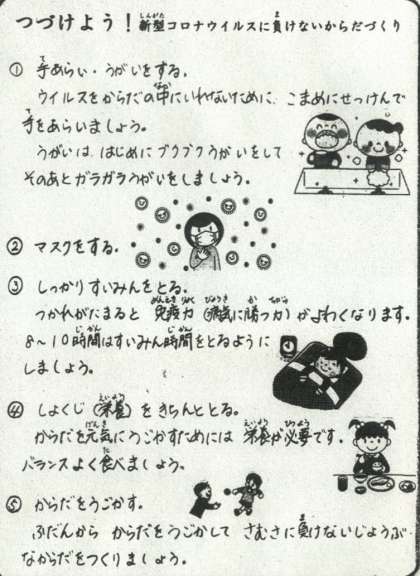 つづけよう！新型コロナウイルスに負けないからだづくり
① 手あらい・うがいをする。
ウイルスをからだの中にいれないために、こまめにせっけんで
手をあらいましょう。
うがいは、はじめにブクブクうがいをして
そのあとガラガラうがいをしましょう。
② マスクをする。
③ しっかりすいみんをとる。
つかれがたまると 免疫力（病気に勝つ力）がよわくなります。
8〜10時間はすいみん時間をとるように
しましょう。
④ しょくじ（栄養）をきちんととる。
からだを元気にうごかすためには 栄養が必要です。
バランスよく食べましょう。
⑤ からだをうごかす。
ふだんから からだをうごかして さむさに負けないじょうぶ
なからだをつくりましょう。